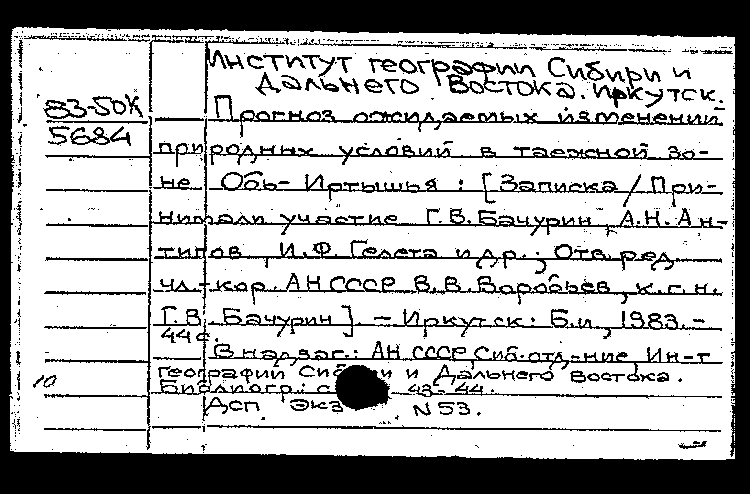 Институт географии Сибири и
Дальнего Востока. Иркутск.
83-50К
5684
Прогноз ожидаемых изменений
природных условий в таежной зо-
не Обь-Иртышья : [Записка / При-
нимали участие Г.В. Бачурин, А.Н. Ан-
типов, И.Ф. Гелета и др.; Отв. ред.
чл.-кор. АН СССР В.В. Воробьев, к.г.н.
Г.В. Бачурин]. - Иркутск: Б.и, 1983.-
44 с.
В надзаг.: АН СССР, Сиб. отд-ние, Ин-т
географии Сибири и Дальнего Востока.
10
Библиогр.: с. 43-44.
Дсп Экз N 53.